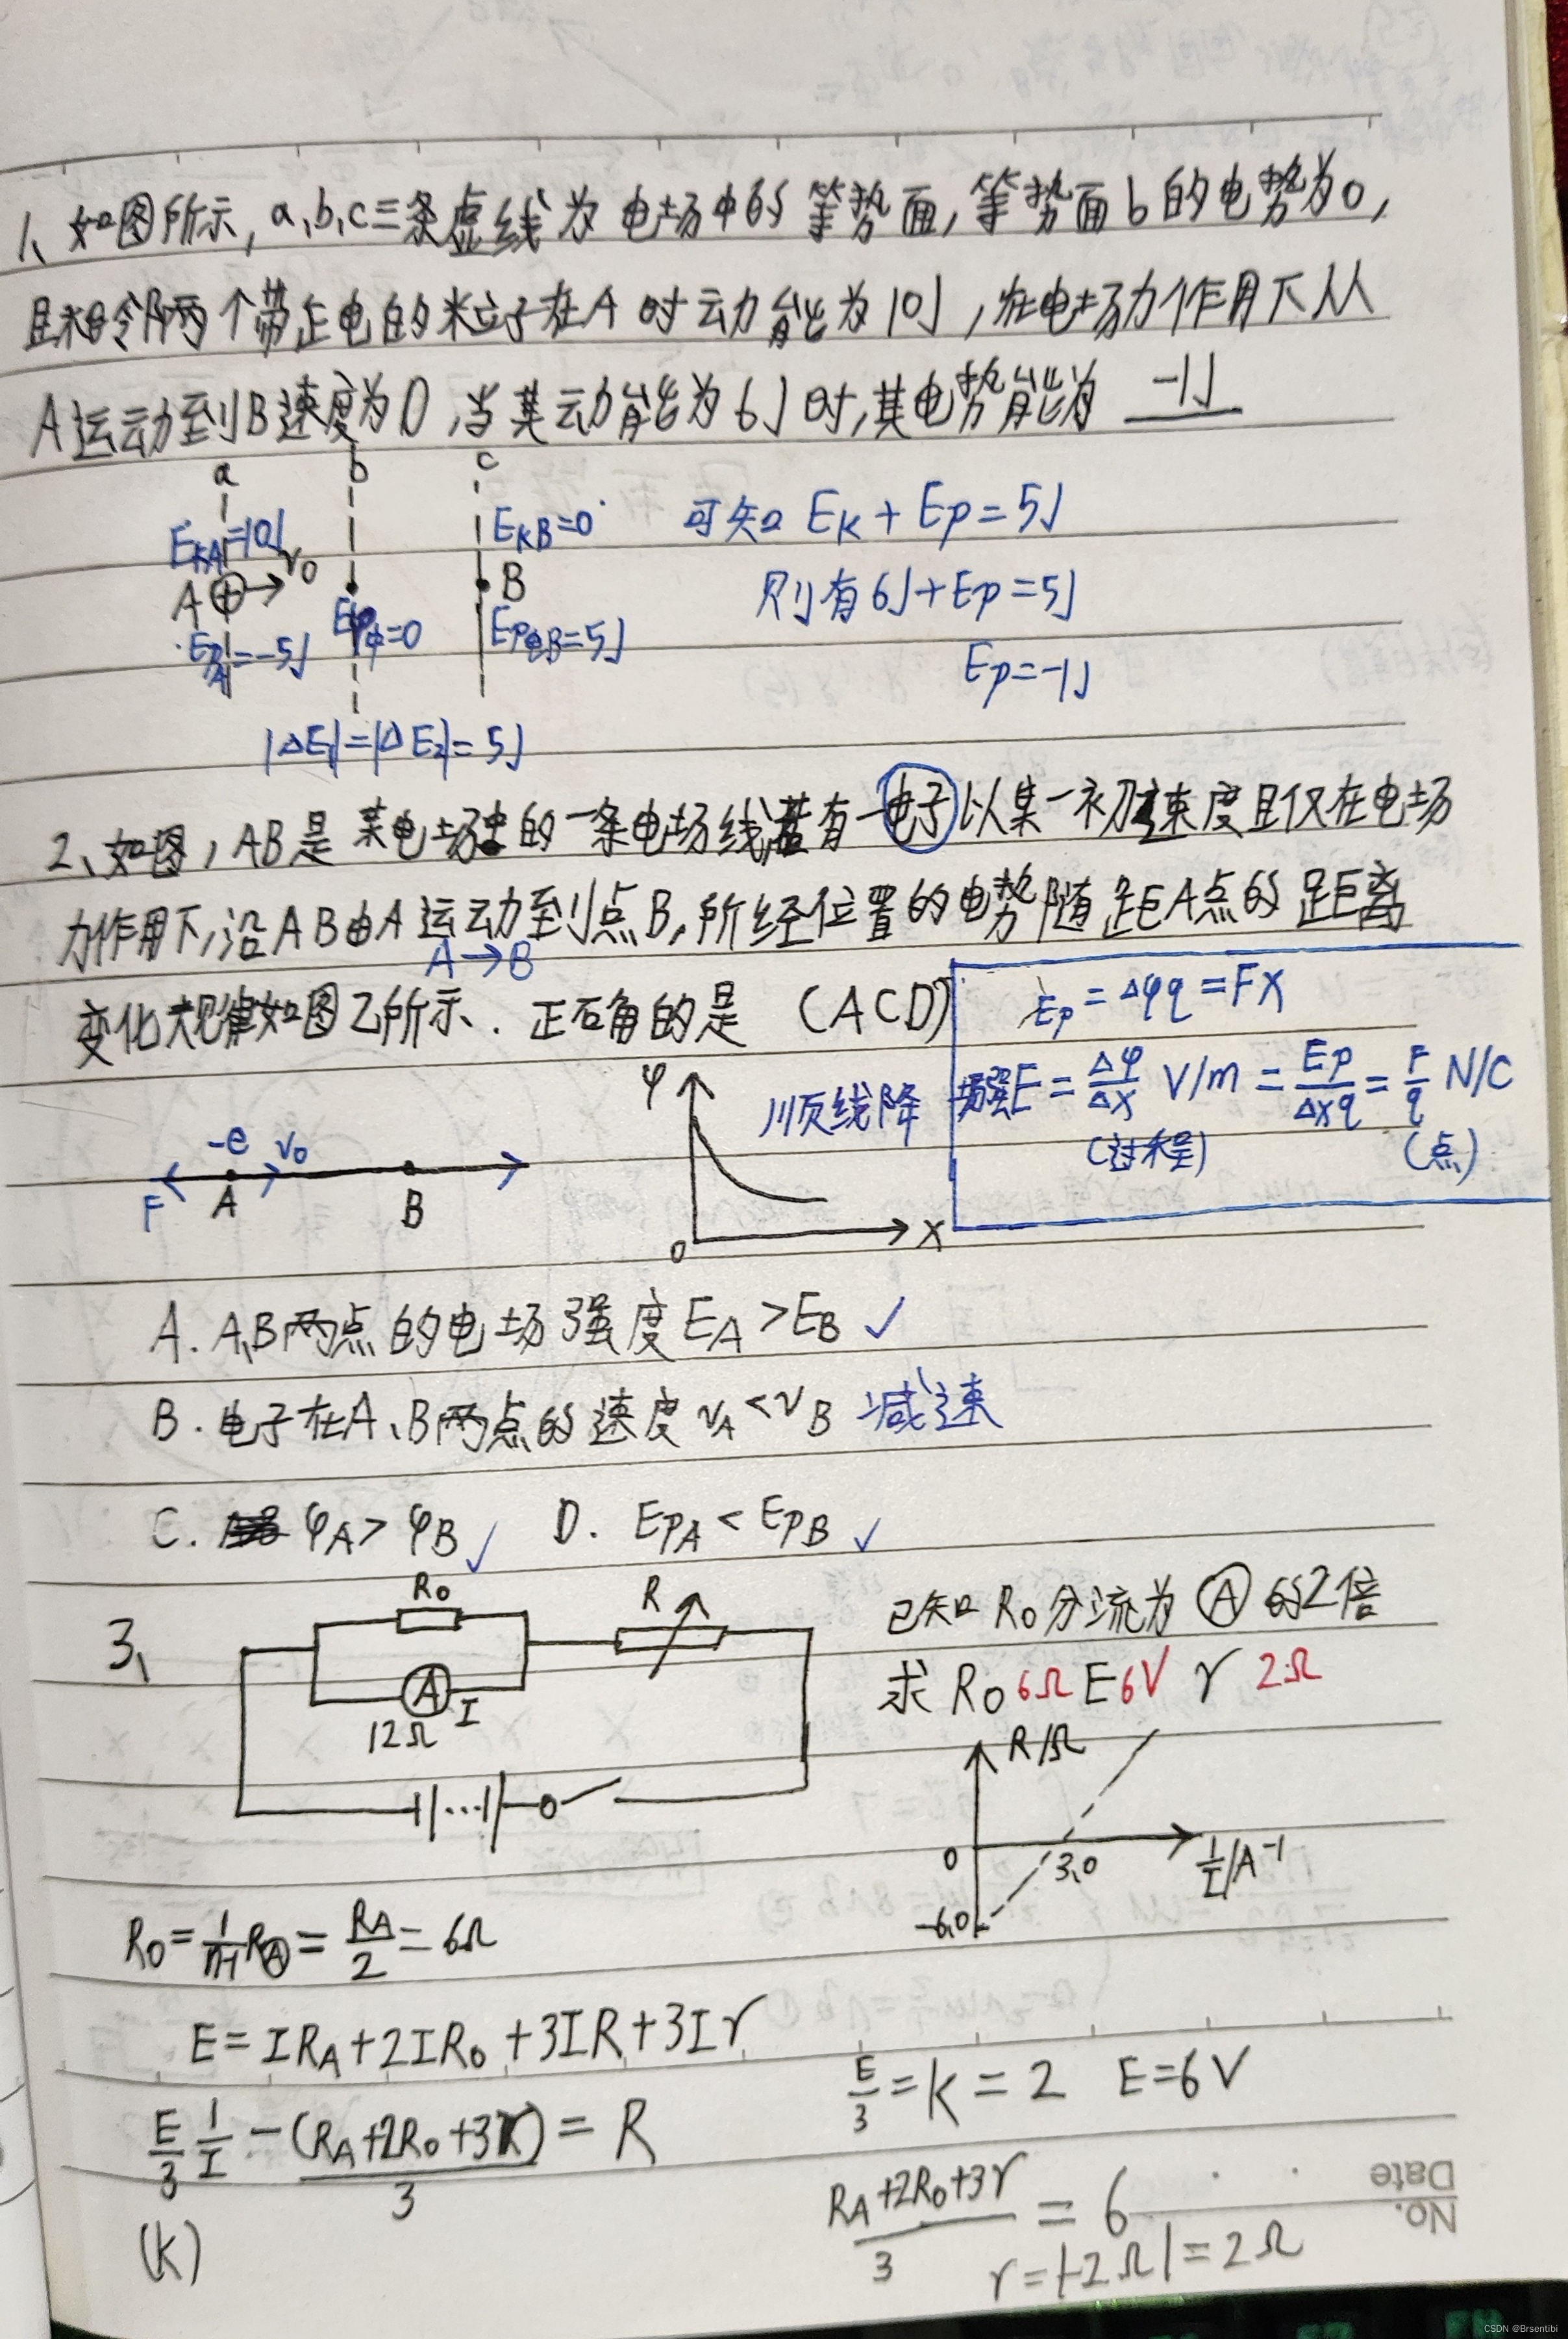 1、如图所示,a,b,c三条虚线为电场中的等势面,等势面b的电势为0,
且相邻两个带正电的粒子在A时动能为10J,在电场力作用下从
A运动到B速度为0,当其动能为6J时,其电势能为 -1J
a b c
EKA=10J EKB=0 可知 EK+EP=5J
A ⊕→v0 B 则有6J+EP=5J
EPA=-5J EP中=0 EPB=5J EP=-1J
|ΔE1|=|ΔE2|=5J
2、如图,AB是某电场中的一条电场线,若有一电子以某一初速度且仅在电场
力作用下,沿AB由A运动到点B,所经位置的电势随距A点的距离
A→B
变化规律如图乙所示.正确的是 (ACD)
EP=Δφq=FX
场强E=Δφ/Δx V/m=EP/Δxq=F/q N/C
(过程) (点)
φ 顺线降
-e v0
F A B
0 X
A.A、B两点的电场强度EA>EB ✓
B.电子在A、B两点的速度vA<vB 减速
C. φA>φB ✓ D. EPA<EPB ✓
3、 R0 R 已知R0分流为Ⓐ的2倍
A I 求R0 6Ω E 6V r 2Ω
12Ω
R/Ω
0 3.0 1/I/A⁻¹
-6.0
R0=1/(n-1)RⒶ=RA/2=6Ω
E=IRA+2IR0+3IR+3Ir
E/3=k=2 E=6V
E/3 1/I-(RA+2R0+3r)/3=R
(k)
(RA+2R0+3r)/3=6
r=|-2Ω|=2Ω
No.
Date
CSDN @Brsentibi